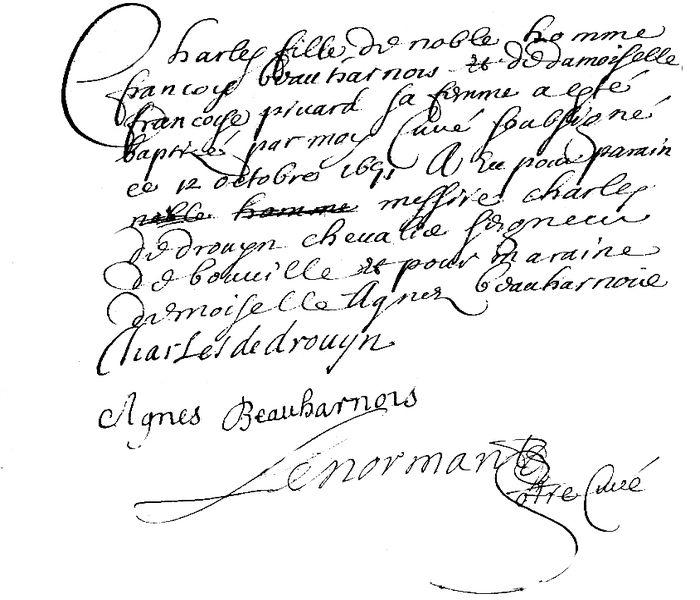 Charles fille de noble homme
francoys beauharnois et de damoiselle
francoyse pivard sa femme a esté
baptizé par moy Curé soubsigné
ce 12 octobre 1691 A Eu pour parain
noble homme messire charles
de drouyn chevalie seigneur
de bouville et pour maraine
damoiselle Agnes beauharnois
Charles de drouyn
Agnes Beauharnois
Lenormant
Curé